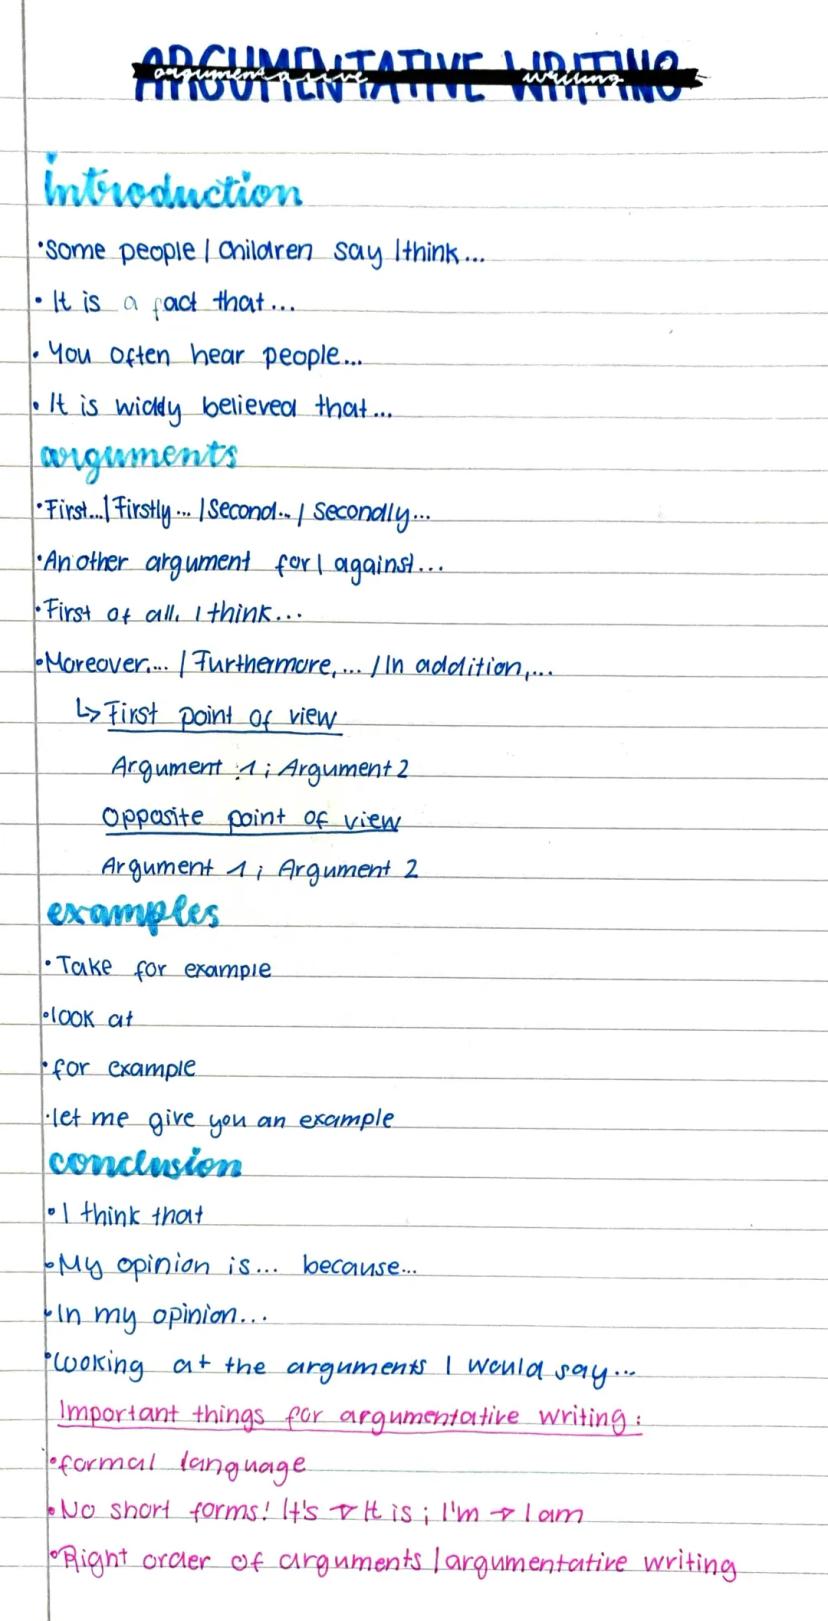 ARGUMENTATIVE WRITING
argumentative writing
introduction
•Some people | Children say |think...
• It is a fact that...
• You often hear people...
• It is widdy believed that...
arguments
•First...| Firstly... |Second... | Secondly...
•Another argument for| against...
•First of all, I think...
•Moreover,... | Furthermore,... / In addition,...
↳ First point of view
Argument 1; Argument 2
Opposite point of view
Argument 1; Argument 2
examples
•Take for example
•look at
•for example
•let me give you an example
conclusion
•I think that
•My opinion is... because...
•In my opinion...
•Looking at the arguments I would say...
Important things for argumentative writing:
•formal language
•No short forms! It's → It is ; I'm → I am
•Right order of arguments |argumentative writing